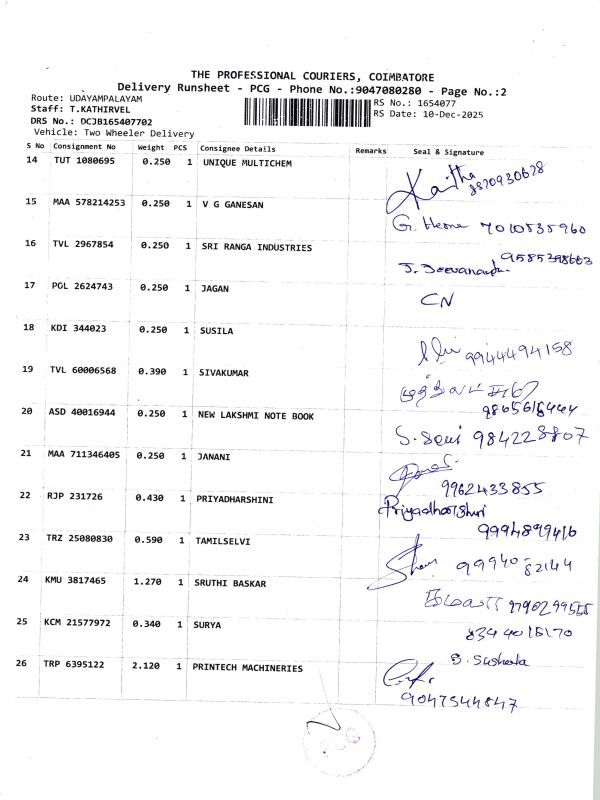 THE PROFESSIONAL COURIERS, COIMBATORE
Delivery Runsheet - PCG - Phone No.:9047080280 - Page No.:2
Route: UDAYAMPALAYAM
Staff: T.KATHIRVEL
DRS No.: DCJB165407702
Vehicle: Two Wheeler Delivery
RS No.: 1654077
RS Date: 10-Dec-2025
S No Consignment No Weight PCS Consignee Details Remarks Seal & Signature
14 TUT 1080695 0.250 1 UNIQUE MULTICHEM
15 MAA 578214253 0.250 1 V G GANESAN
G. 7010535960
16 TVL 2967854 0.250 1 SRI RANGA INDUSTRIES
17 POL 2624743 0.250 1 JAGAN
CN
18 KDI 344023 0.250 1 SUSILA
9944494158
19 TVL 60006568 0.390 1 SIVAKUMAR
20 ASD 40016944 0.250 1 NEW LAKSHMI NOTE BOOK
9842228807
21 MAA 711346405 0.250 1 JANANI
9962433855
22 RJP 231726 0.430 1 PRIYADHARSHINI
Priyadharshini
9994899416
23 TRZ 25080830 0.590 1 TAMILSELVI
99940 82144
24 KMU 3817465 1.270 1 SRUTHI BASKAR
9790299555
25 KCM 21577972 0.340 1 SURYA
8344015170
26 TRP 6395122 2.120 1 PRINTECH MACHINERIES
9047544847
PCG